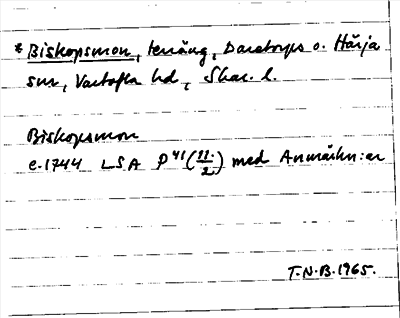 * Biskopsmon, terräng, Daretorps o. Härja
snr, Vartofta hd, Skar. l.
Biskopsmon
e. 1744 LSA P 41 (11/2) med Anmärkn:ar
T.N.B. 1965.